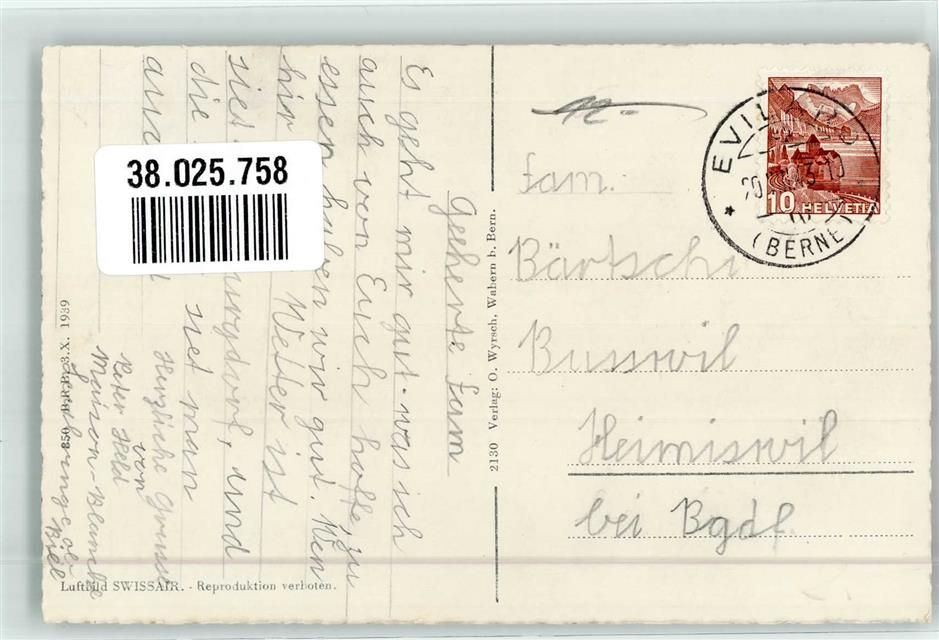 Geehrte Fam
Es geht mir gut. was ich
auch von Euch hoffe, zu
essen haben wir gut. Wen
hir Wetter ist
siet Burgdorf, und
die siet man
Herzliche Grüsse
von
Peter Held
Maison-Blanche
Leubringen ob
Biel
850 B.R.B. 3.X. 1939
Luftbild SWISSAIR. - Reproduktion verboten.
2130 Verlag: O. Wyrsch, Wabern b. Bern.
38.025.758
Fam.
Bärtschi
Busswil
Heimiswil
bei Bgdf.
EVILARD
20
(BERNE)
10 HELVETIA